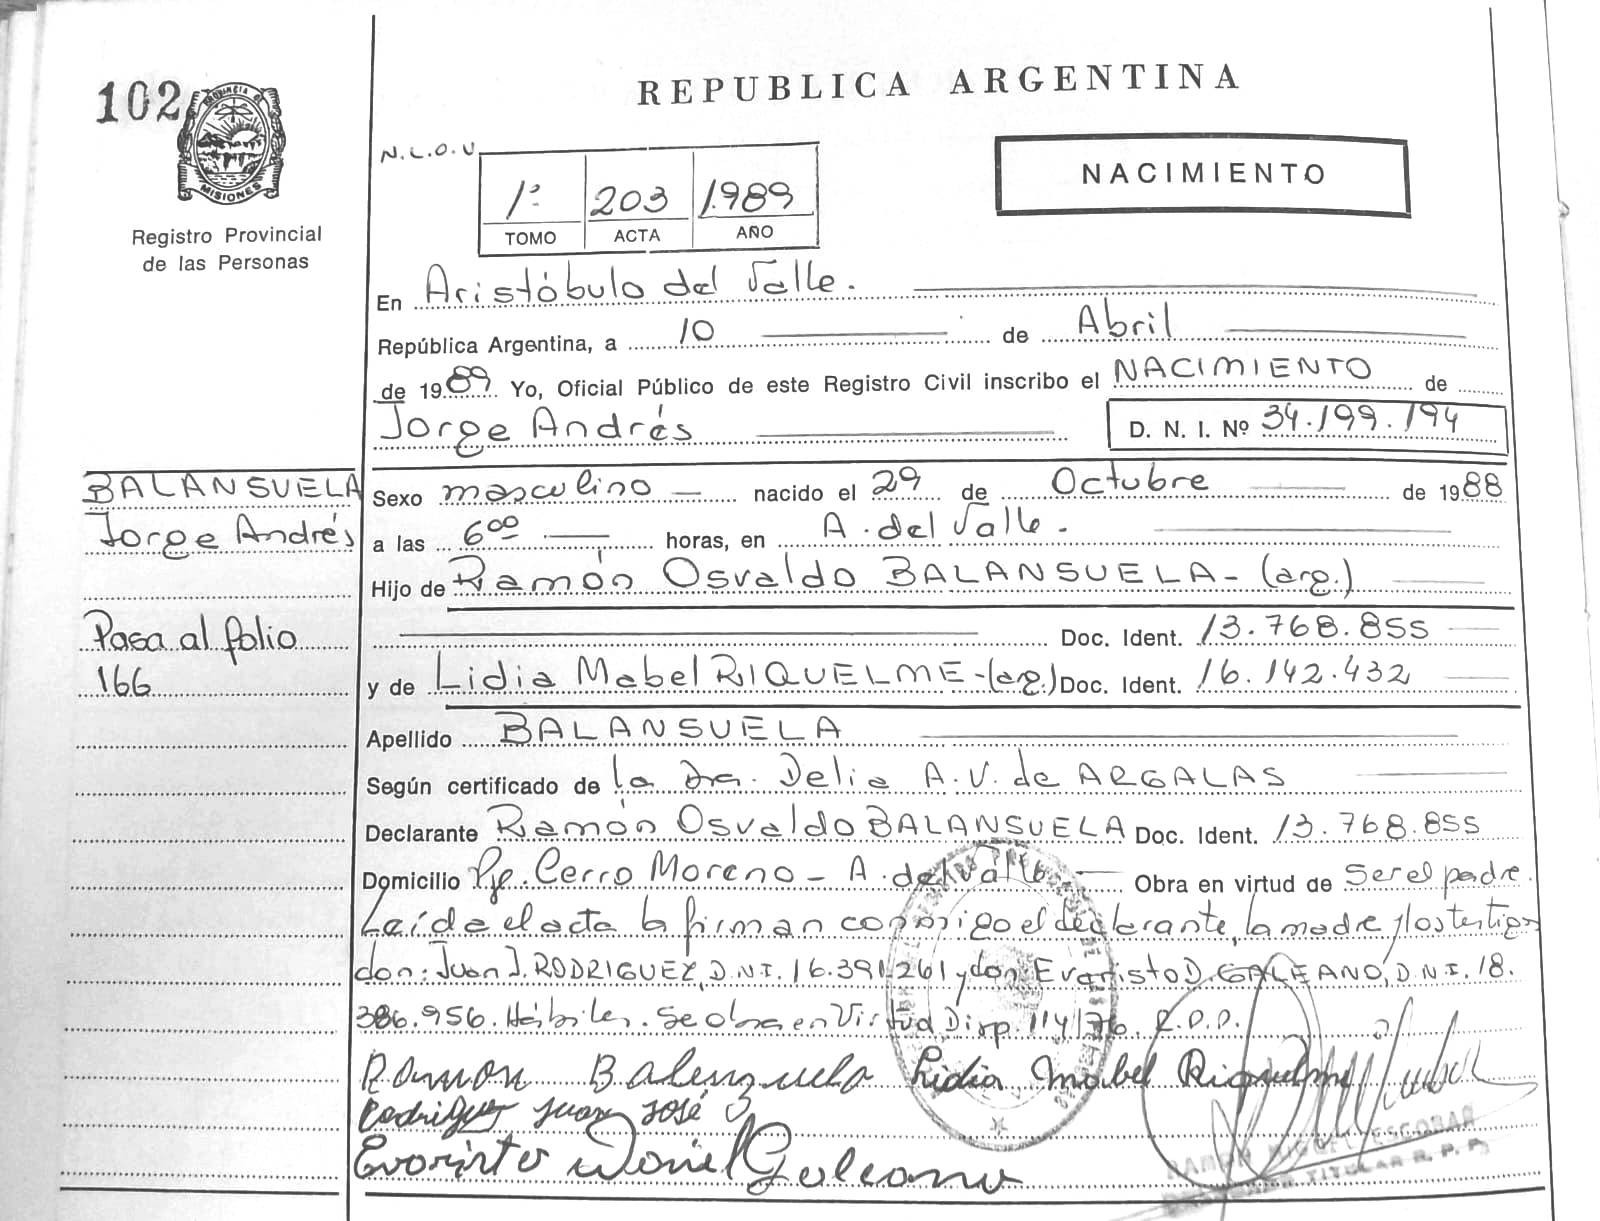 102
PROVINCIA DE
MISIONES
Registro Provincial
de las Personas
REPUBLICA ARGENTINA
N.L.O.V.
1º 203 1.989
TOMO ACTA AÑO
NACIMIENTO
En Aristóbulo del Valle.
República Argentina, a 10 de Abril
de 1989 Yo, Oficial Público de este Registro Civil inscribo el NACIMIENTO de
Jorge Andrés D. N. I. Nº 34.199.194
BALANSUELA
Jorge Andrés
Pasa al folio
166
Sexo masculino nacido el 29 de Octubre de 1988
a las 600 horas, en A. del Valle.
Hijo de Ramón Osvaldo BALANSUELA - (arg.)
Doc. Ident. 13.768.855
y de Lidia Mabel RIQUELME - (arg.) Doc. Ident. 16.142.432
Apellido BALANSUELA
Según certificado de la Dra. Delia A.V. de ARGALAS
Declarante Ramón Osvaldo BALANSUELA Doc. Ident. 13.768.855
Domicilio Pje. Cerro Moreno - A. del Valle Obra en virtud de Ser el padre.
Leída el acta la firman conmigo el declarante, la madre y los testigos
don: Juan J. RODRIGUEZ, D.N.I. 16.391.261 y don Evaristo D. GALEANO, D.N.I. 18.
386.956. Hábiles. Se obra en Virtud Disp. 114/76. R.P.P.
Ramon Balenzuela Lidia Mabel Riquelme
Rodriguez Juan José
Evaristo Daniel Galeano
RAMON MIGUEL ESCOBAR
TITULAR R. P. P.